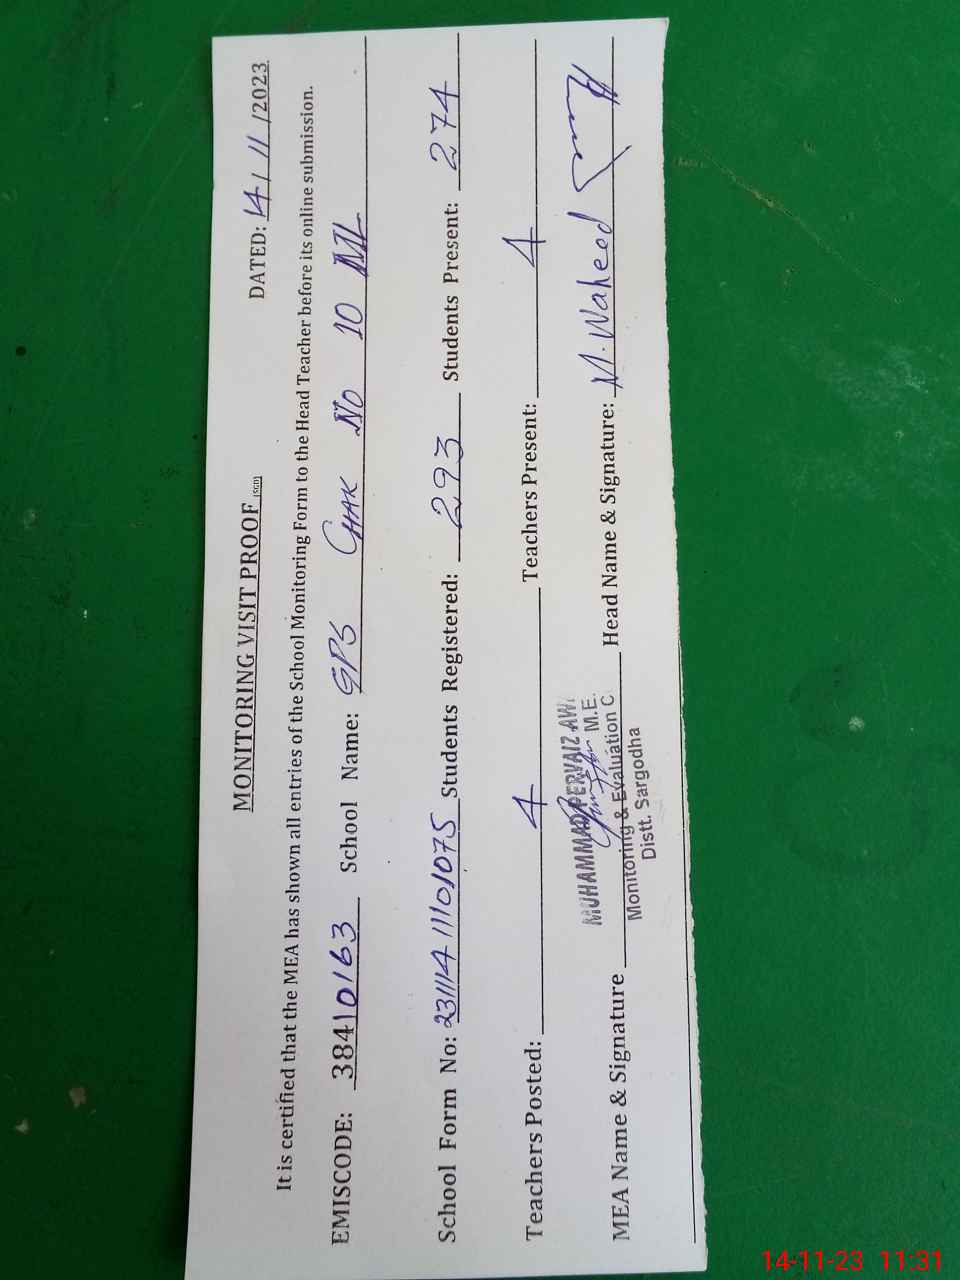 MONITORING VISIT PROOF (SGD)
DATED: 14/11/2023
It is certified that the MEA has shown all entries of the School Monitoring Form to the Head Teacher before its online submission.
EMISCODE: 38410163 School Name: GPS CHAK NO 10 ML
School Form No: 231114111101075 Students Registered: 293 Students Present: 274
Teachers Posted: 4 Teachers Present: 4
MUHAMMAD PERVAIZ AW
M.E.
Monitoring & Evaluation C
Distt. Sargodha
MEA Name & Signature Head Name & Signature: M. Waheed
14-11-23 11:31